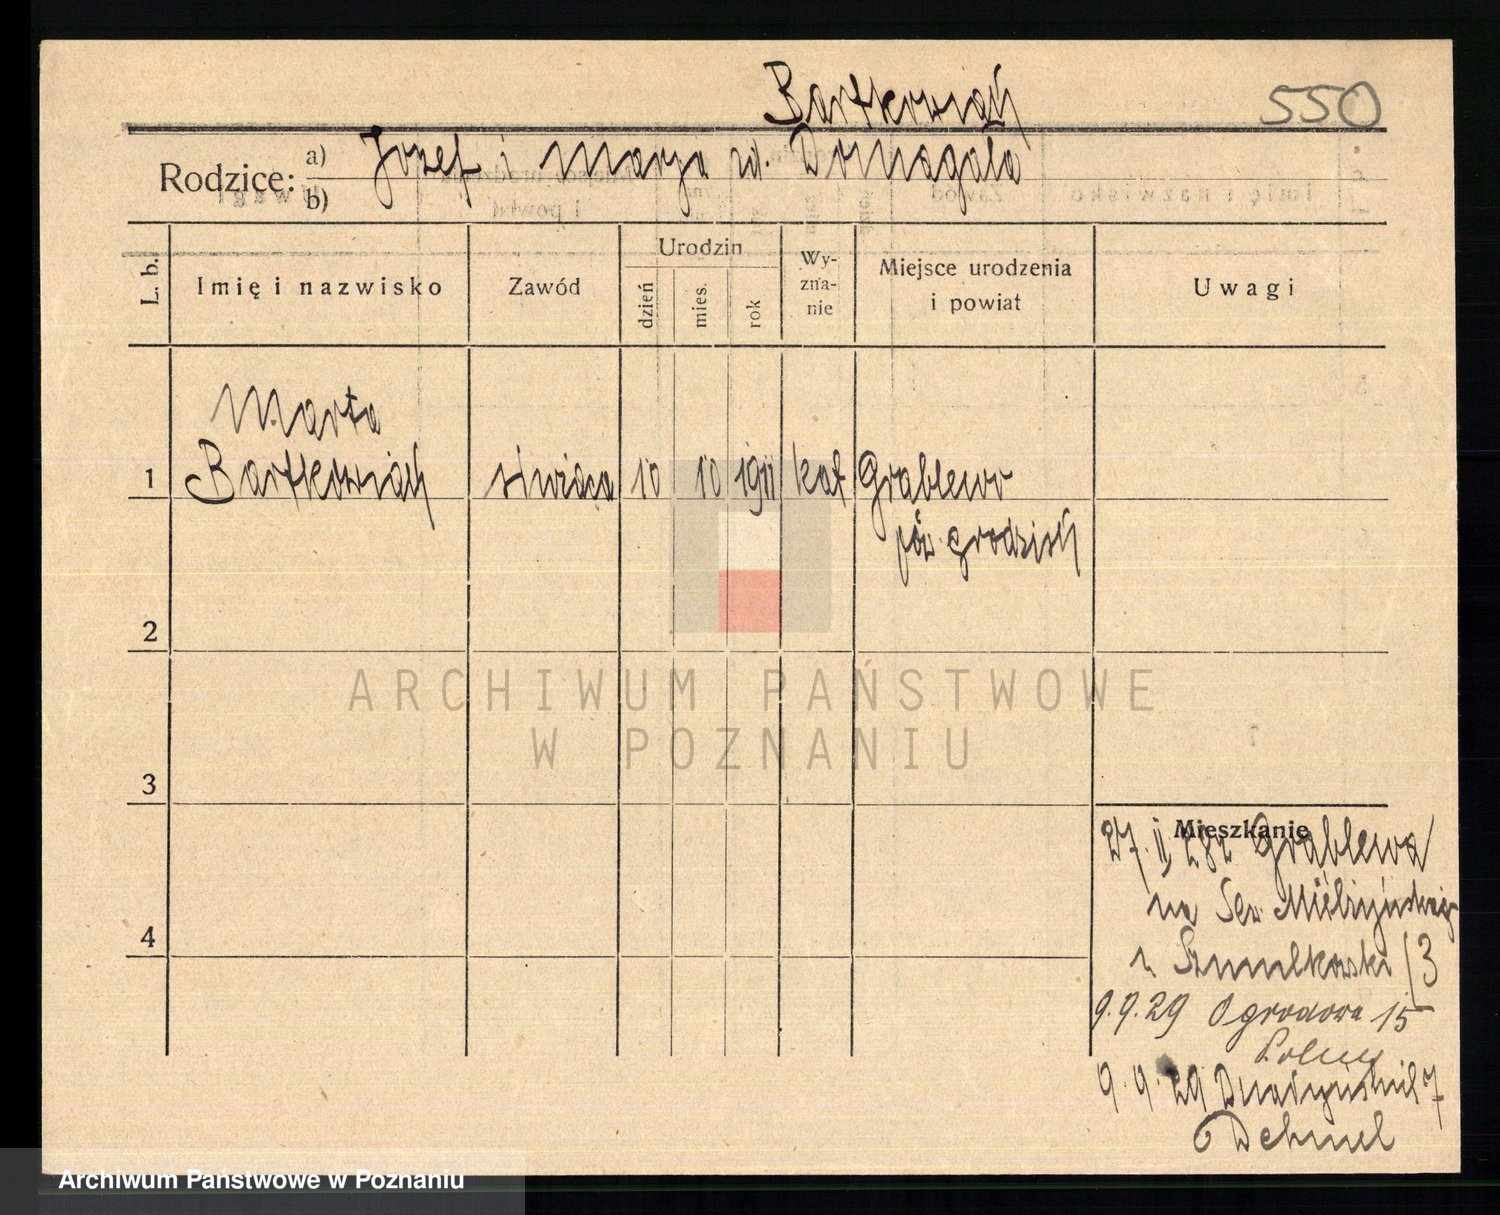 Bartkowiak
550
Rodzice: a) Józef i Marya zd. Domagała
b)
L. b.
Imię i nazwisko
Zawód
Urodzin
dzień
mies.
rok
Wy-
zna-
nie
Miejsce urodzenia
i powiat
Uwagi
Marta
1 Bartkowiak służąca 10 10 1911 kat Grąblewo
pow. grodzisk
2
ARCHIWUM PAŃSTWOWE
W POZNANIU
3
Mieszkanie
27. II. 28 z Grąblewa
na Sew. Mielżyńskiego
u Szmulkowski 3
4
9.9.29 Ogrodowa 15
9.9.29 7
Archiwum Państwowe w Poznaniu